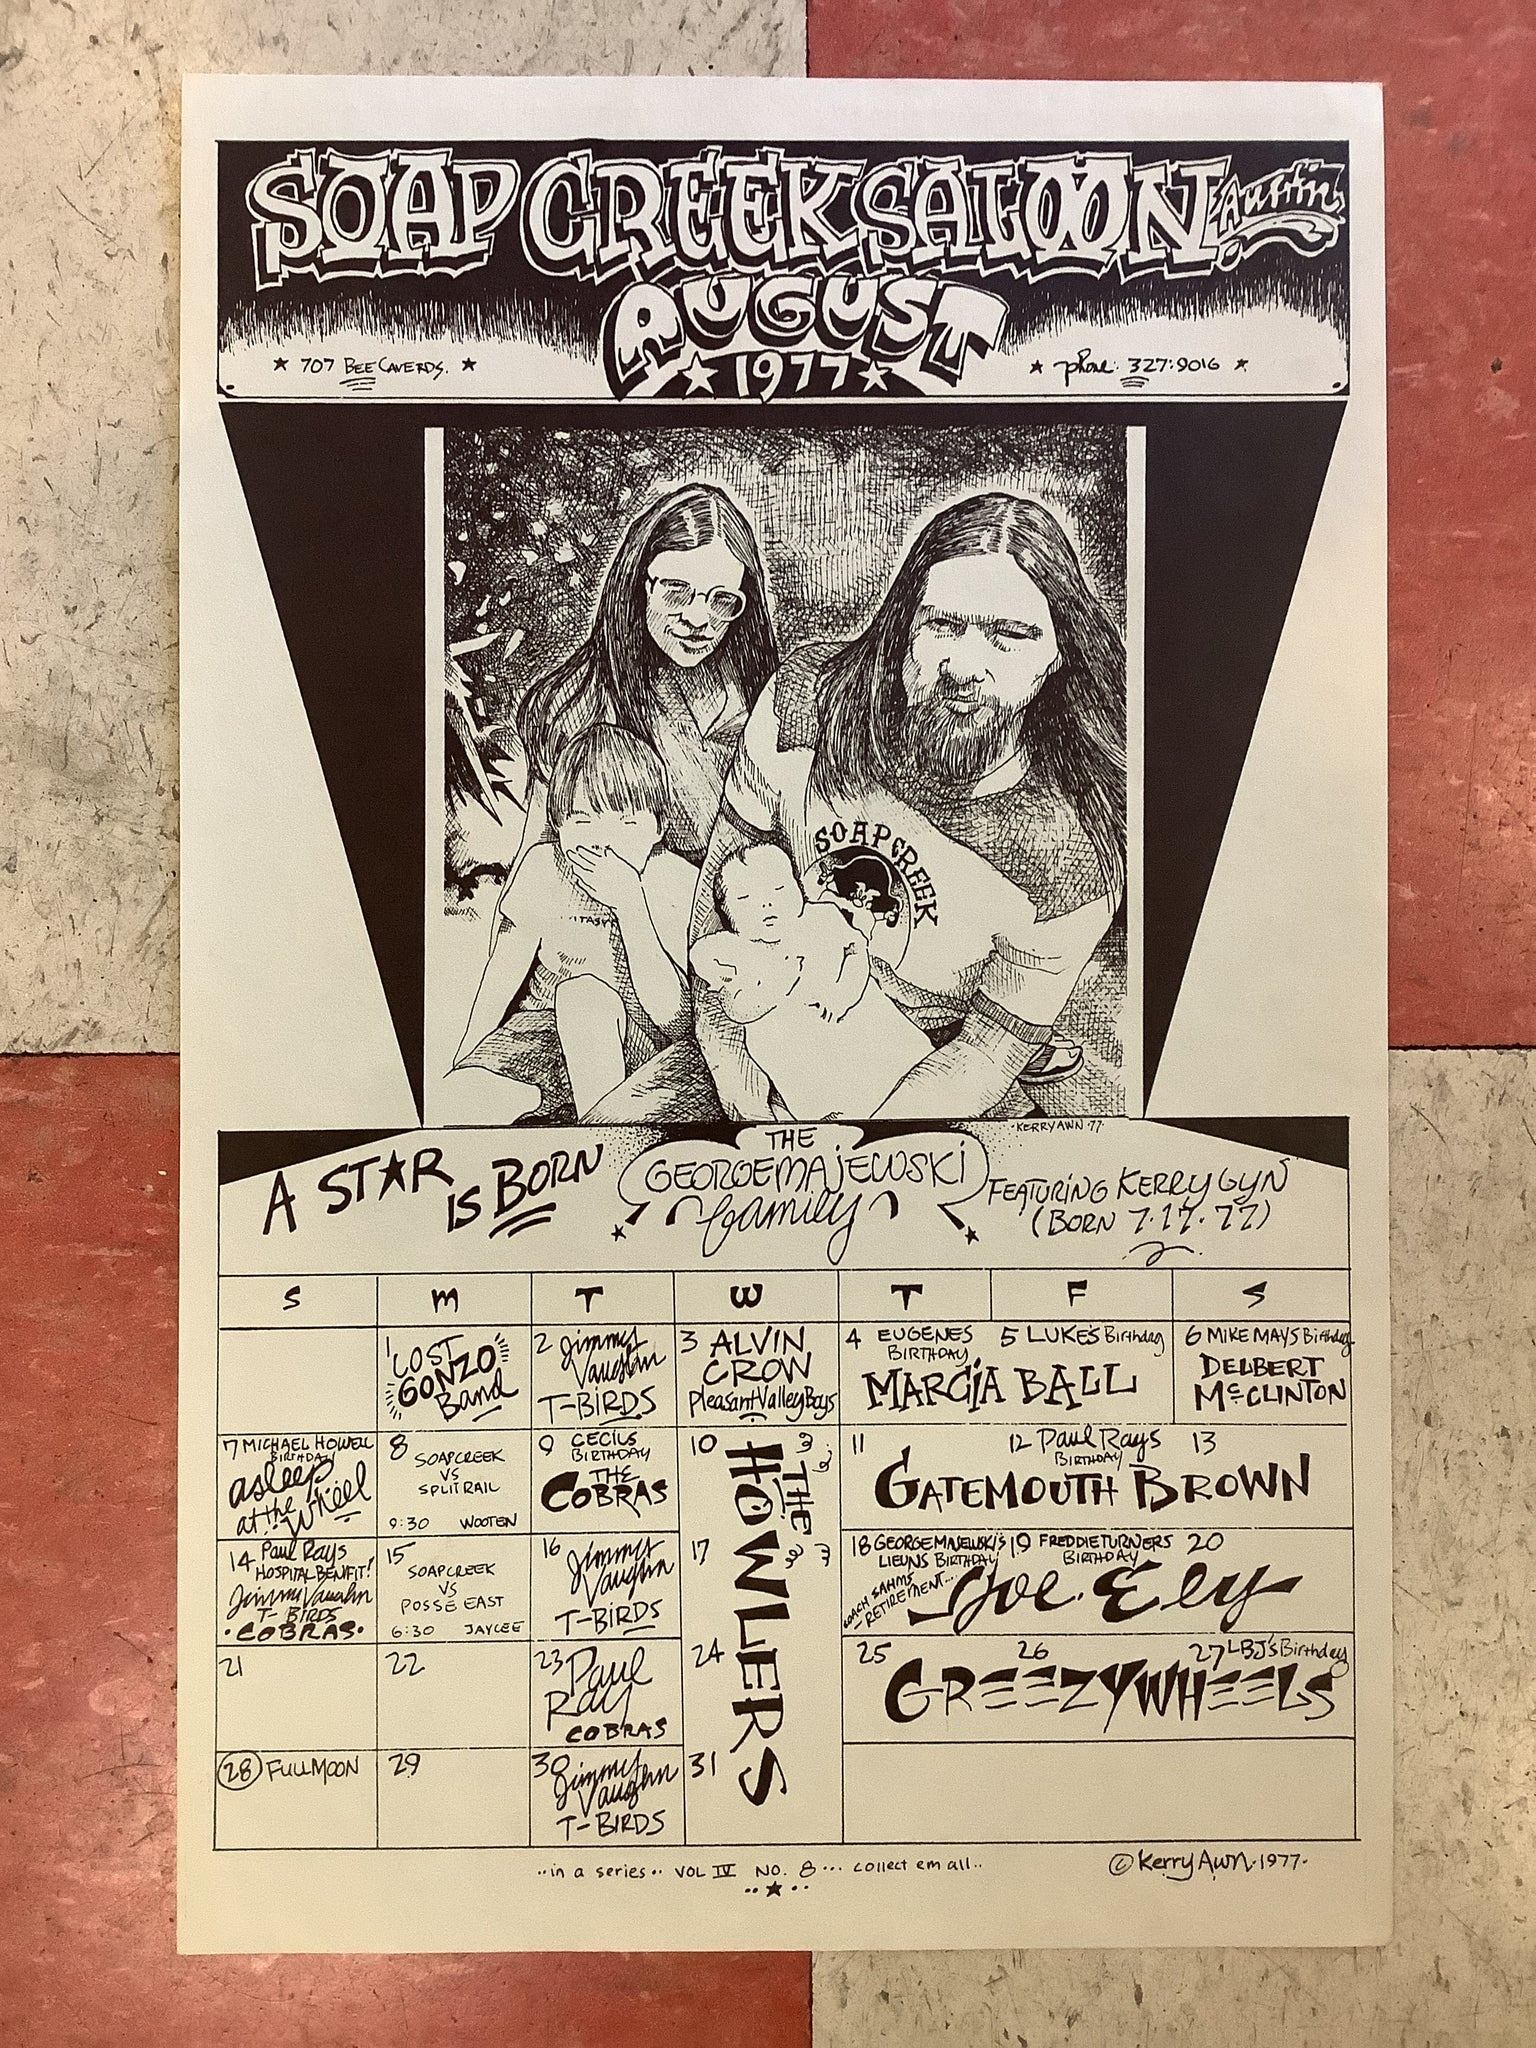 SOAP CREEK SALOON Austin
AUGUST
★ 707 BEE CAVE RDS. ★
★ 1977 ★
★ phone: 327:9016 ★
SOAP CREEK
·KERRY AWN·77·
A STAR IS BORN
THE
GEORGE MAJEWSKI
family
FEATURING KERRY GYN
(BORN 7·17·77)
S M T W T F S
1 LOST GONZO Band
2 Jimmy Vaughn T-BIRDS
3 ALVIN CROW Pleasant Valley Boys
4 EUGENES BIRTHDAY
5 LUKE'S Birthday
MARCIA BALL
6 MIKE MAYS Birthday
DELBERT McCLINTON
7 MICHAEL HOWELL BIRTHDAY
asleep at the Wheel
8 SOAPCREEK VS SPLITRAIL
9:30 WOOTEN
9 CECILS BIRTHDAY
THE COBRAS
10
THE HOWLERS
11
12 Paul Rays BIRTHDAY
13
GATEMOUTH BROWN
14 Paul Rays HOSPITAL BENIFIT!
Jimmy Vaughn T-BIRDS
·COBRAS·
15 SOAPCREEK VS POSSE EAST
6:30 JAYCEE
16 Jimmy Vaughn T-BIRDS
17
18 GEORGE MAJEWSKI'S
LIEUNS BIRTHDAY
COACH SAHMS RETIREMENT...
19 FREDDIE TURNERS BIRTHDAY
20
Joe Ely
21
22
23 Paul Ray COBRAS
24
25
26
27 LBJ's Birthday
GREEZY WHEELS
28 FULL MOON
29
30 Jimmy Vaughn T-BIRDS
31
..in a series.. VOL IV NO. 8 ... collect em all..
© Kerry Awn·1977·